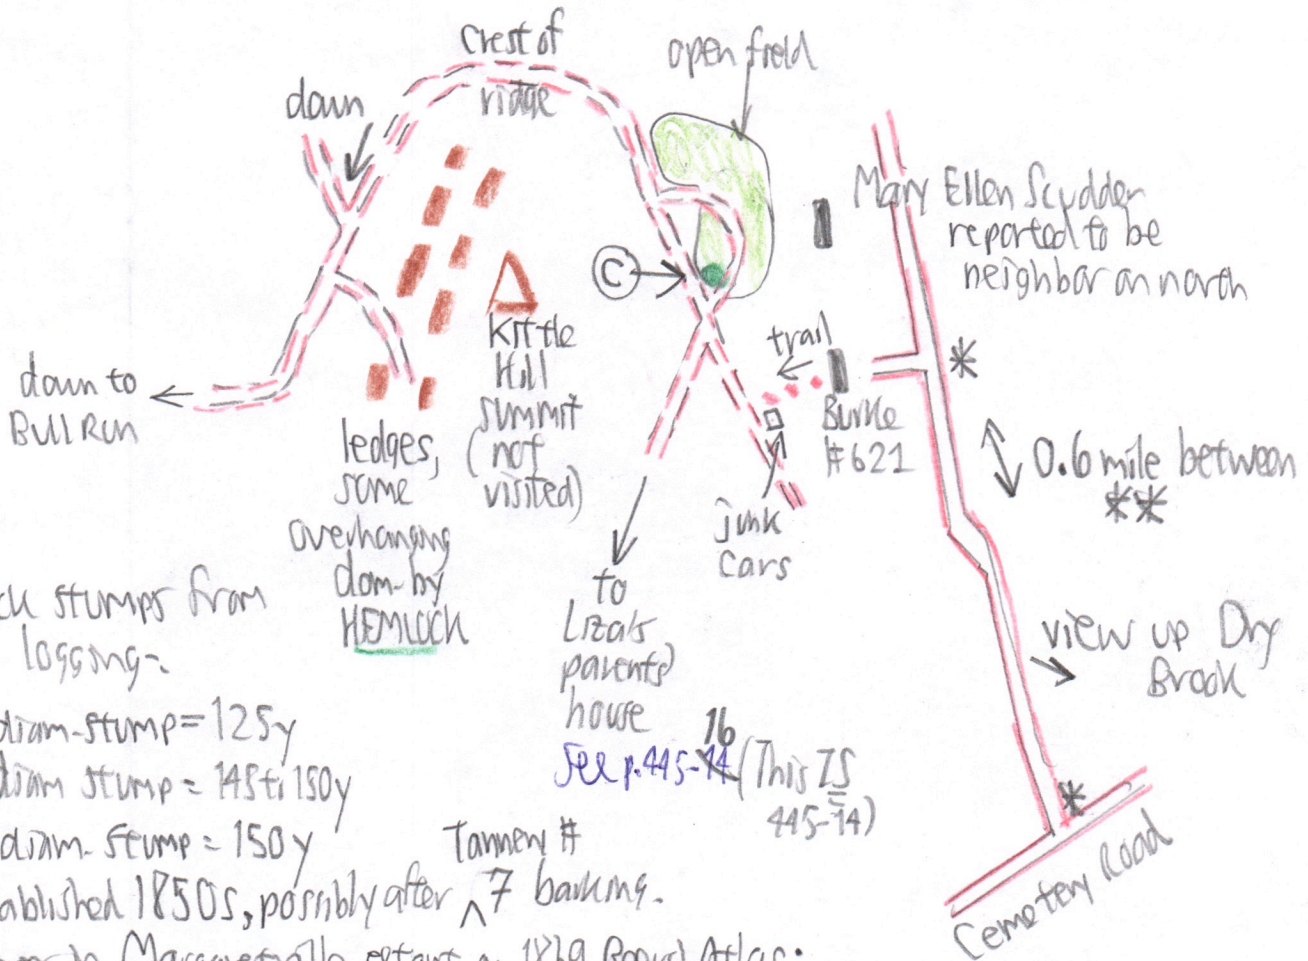 crest of
ridge
open field
down
Mary Ellen Scudder
reported to be
neighbor on north
C
trail
*
Kittle
Hill
summit
(not
visited)
down to
Bull Run
Burke
#621
ledges,
some
overhanging
dom. by
HEMLOCK
0.6 mile between
**
junk
cars
to
Liza's
parents'
house
16
See p. 445-14 (This IS
445-14)
view up Dry
Brook
*
Cemetery Road
ck stumps from
logging:
diam. stump = 125y
diam stump = 145 to 150y
diam. stump = 150y
Tannery #
ablished 1850s, possibly after ^ 7 barking.
Margaretville extant in 1869 Beers Atlas: